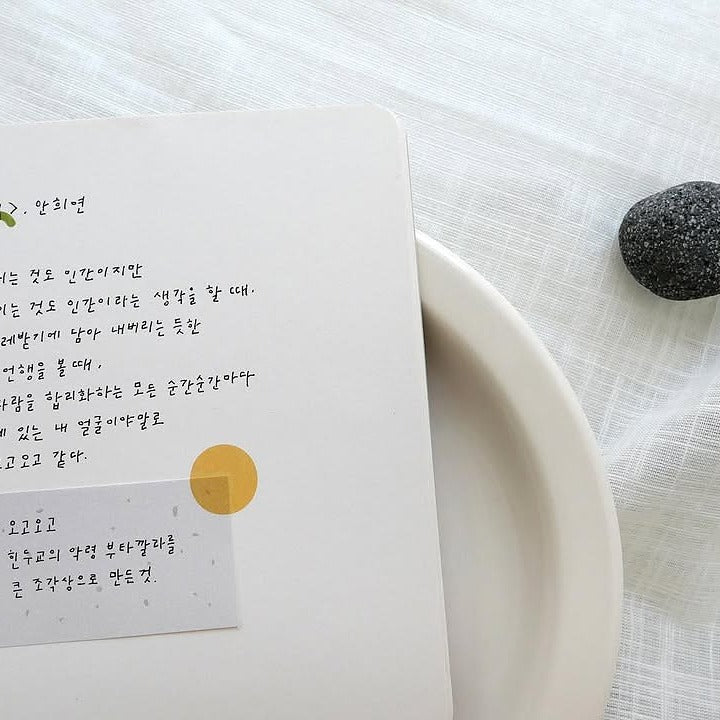 >. 안희연
는 것도 인간이지만
는 것도 인간이라는 생각을 할 때.
레받기에 담아 내버리는 듯한
언행을 볼 때,
사람을 합리화하는 모든 순간순간마다
있는 내 얼굴이야말로
오고오고 같다.
오고오고
힌두교의 악령 부타깔라를
큰 조각상으로 만든 것.